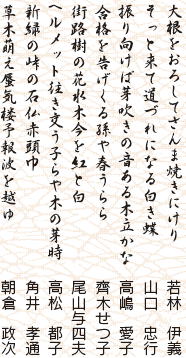 大根をおろしてさんま焼きにけり 若林 伊義
そっと来て道づれになる白き蝶 山口 忠行
振り向けば芽吹きの音ある木立かな 高嶋 愛子
合格を告げくる孫や春うらら 齊木せつ子
街路樹の花水木今を紅と白 尾山与四夫
ヘルメット往き交う子らや木の芽時 高松 都子
新緑の峠の石仏赤頭巾 角井 孝通
草木萌え蜃気楼予報波を越ゆ 朝倉 政次